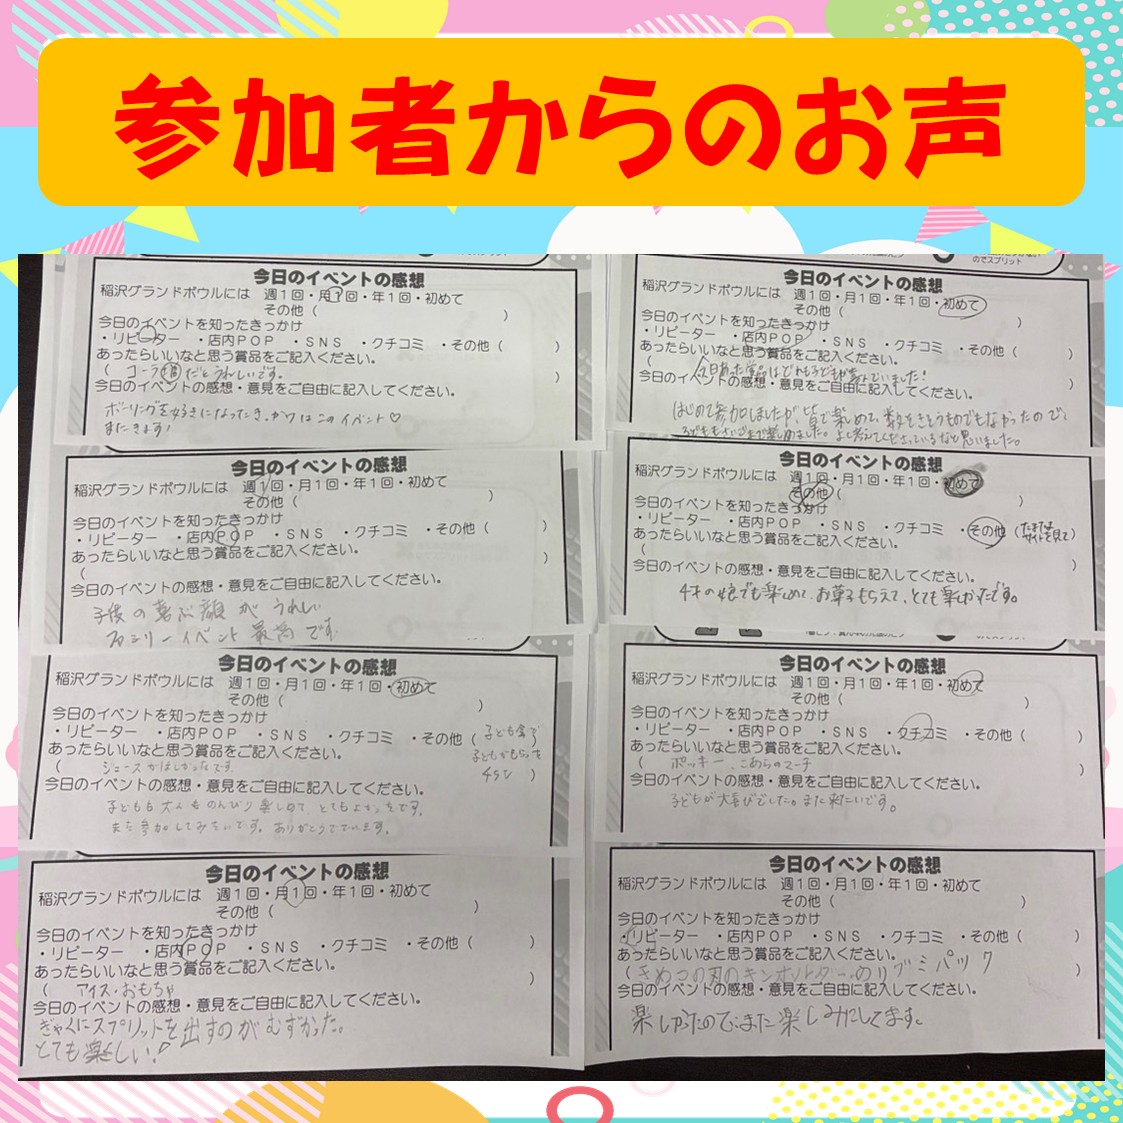 参加者からのお声
今日のイベントの感想
稲沢グランドボウルには 週1回・月1回・年1回・初めて
その他( )
今日のイベントを知ったきっかけ
・リピーター ・店内POP ・SNS ・クチコミ ・その他( )
あったらいいなと思う賞品をご記入ください。
(コーラ1箱だとうれしいです。 )
今日のイベントの感想・意見をご自由に記入してください。
ボーリングを好きになったき、かけはこのイベント♡
またきます!
のでスプリット
今日のイベントの感想
稲沢グランドボウルには 週1回・月1回・年1回・初めて
その他( )
今日のイベントを知ったきっかけ
・リピーター ・店内POP ・SNS ・クチコミ ・その他( )
あったらいいなと思う賞品をご記入ください。
(今日あった賞品はどれも子どもが喜んでいました! )
今日のイベントの感想・意見をご自由に記入してください。
はじめて参加しましたが、皆で楽しめて、数をきそうものでもなかったので、
子どももさいごまで楽しめました。よく考えてくださっているなと思いました。
今日のイベントの感想
稲沢グランドボウルには 週1回・月1回・年1回・初めて
その他( )
今日のイベントを知ったきっかけ
・リピーター ・店内POP ・SNS ・クチコミ ・その他( )
あったらいいなと思う賞品をご記入ください。
( )
今日のイベントの感想・意見をご自由に記入してください。
子供の喜ぶ顔がうれしい
ファミリーイベント最高です
今日のイベントの感想
稲沢グランドボウルには 週1回・月1回・年1回・初めて
その他( )
今日のイベントを知ったきっかけ
・リピーター ・店内POP ・SNS ・クチコミ ・その他(たまたま
サイトを見て)
あったらいいなと思う賞品をご記入ください。
( )
今日のイベントの感想・意見をご自由に記入してください。
4才の娘でも楽しめて、お菓子もらえて、とても楽しかったです。
今日のイベントの感想
稲沢グランドボウルには 週1回・月1回・年1回・初めて
その他( )
今日のイベントを知ったきっかけ
・リピーター ・店内POP ・SNS ・クチコミ ・その他(子ども会
子どもがもらった
チラシ)
あったらいいなと思う賞品をご記入ください。
(ジュースがほしかったです )
今日のイベントの感想・意見をご自由に記入してください。
子どもも大人ものんびり楽しめて とてもよかったです。
また参加してみたいです。ありがとうございます。
今日のイベントの感想
稲沢グランドボウルには 週1回・月1回・年1回・初めて
その他( )
今日のイベントを知ったきっかけ
・リピーター ・店内POP ・SNS ・クチコミ ・その他( )
あったらいいなと思う賞品をご記入ください。
(ポッキー、こあらのマーチ )
今日のイベントの感想・意見をご自由に記入してください。
子どもが大喜びでした。また来たいです。
今日のイベントの感想
稲沢グランドボウルには 週1回・月1回・年1回・初めて
その他( )
今日のイベントを知ったきっかけ
・リピーター ・店内POP ・SNS ・クチコミ ・その他( )
あったらいいなと思う賞品をご記入ください。
(アイス・おもちゃ )
今日のイベントの感想・意見をご自由に記入してください。
ぎゃくにスプリットを出すのがむずかった。
とても楽しい!
今日のイベントの感想
稲沢グランドボウルには 週1回・月1回・年1回・初めて
その他( )
今日のイベントを知ったきっかけ
・リピーター ・店内POP ・SNS ・クチコミ ・その他( )
あったらいいなと思う賞品をご記入ください。
(きめつの刃のキーホルダー )
今日のイベントの感想・意見をご自由に記入してください。
楽しかったので、また楽しみにしてます。